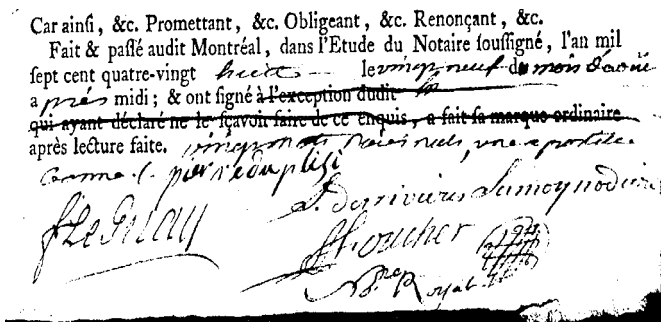 Car ainsi, &c. Promettant, &c. Obligeant, &c. Renonçant, &c.
Fait & paſſé audit Montréal, dans l'Etude du Notaire ſouſſigné, l'an mil
ſept cent quatre-vingt huit le vingt neuf du mois d'aoüt
a prés midi; & ont ſigné à l'exception dudit
qui ayant déclaré ne le ſçavoir faire de ce enquis, a fait ſa marque ordinaire
après lecture faite. vingt mots raies nuls, une apostille
comme
pierre duplesi
J. Le Guay
Foucher